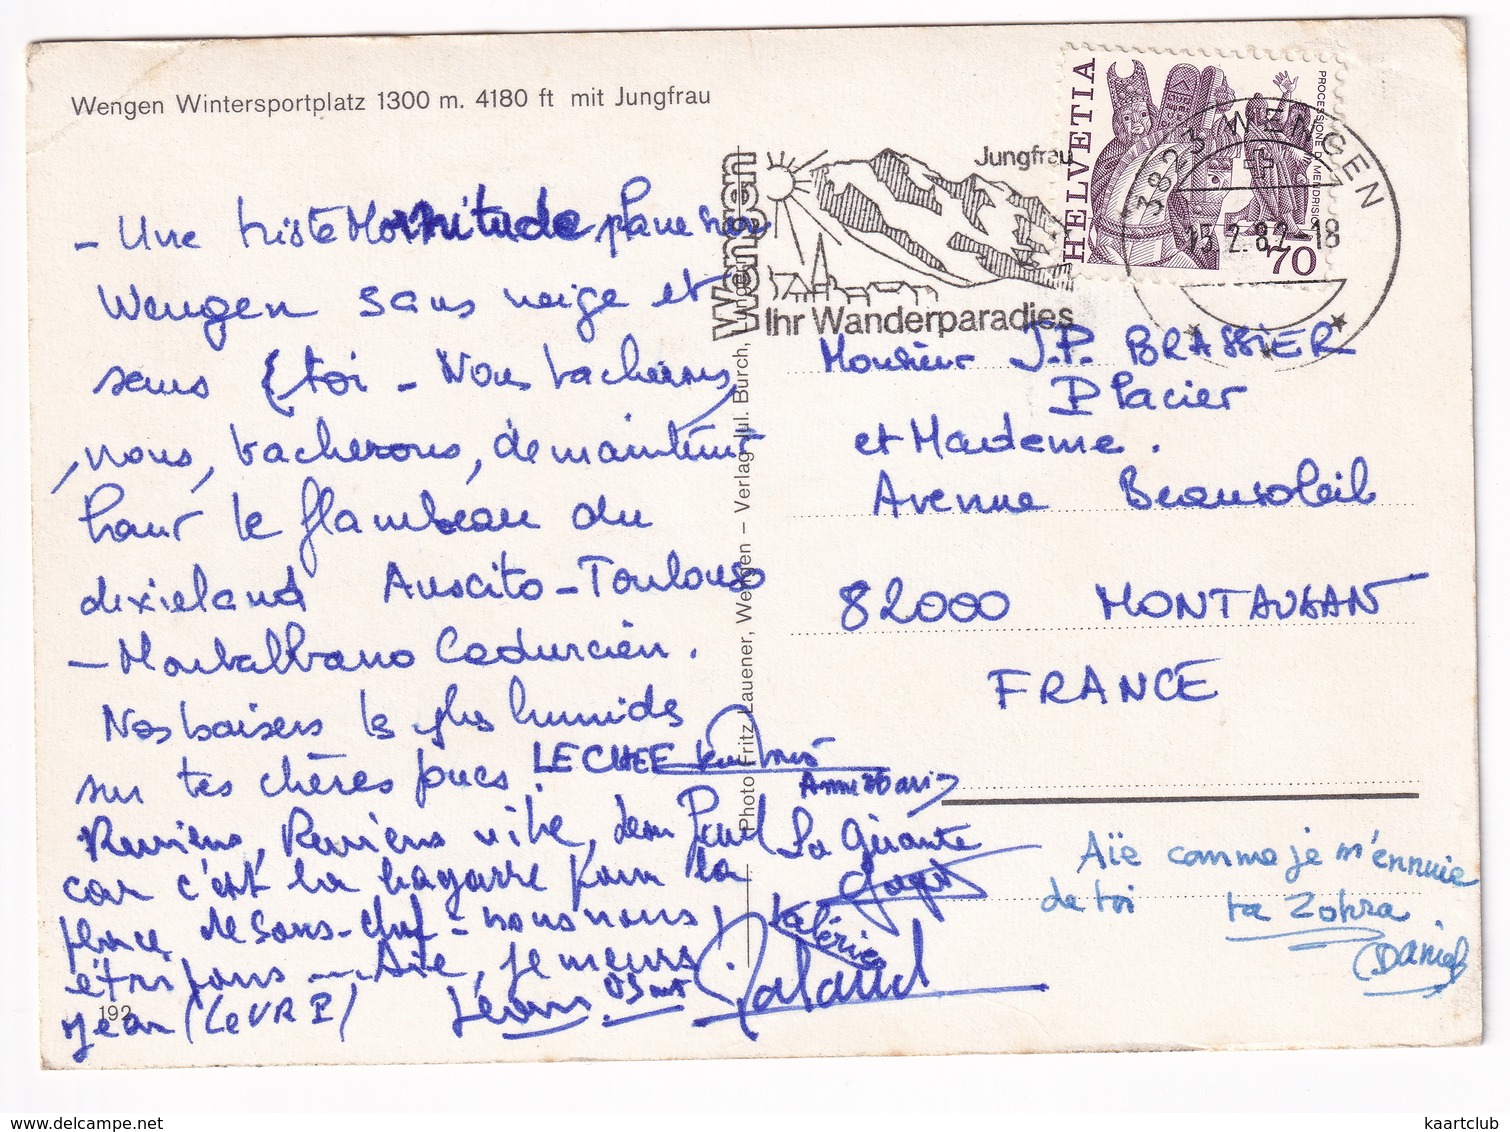 Wengen Wintersportplatz 1300 m. 4180 ft mit Jungfrau
HELVETIA
PROCESSIONE DI MENDRISIO
70
3823 WENGEN
15.2.82-18
Wengen
Jungfrau
Ihr Wanderparadies
- Une triste plane sur
Wengen sans neige et
sans toi - Nous tacherons,
nous, tacherons, de maintenir
haut le flambeau du
dixieland Auscito-Toulouso
- Montalbano Cadurcien.
Nos baisers les plus humides
sur tes chères joues.
LECHEE
Anne Mari
Reviens, Reviens vite, Jean Paul
car c'est la bagarre pour la
place de sous-chef - nous nous
étripons ... Aïe, je meurs.
Jean (LeVRAI)
La Gérante
Valérie
Monsieur J.P. BRASSIER
Placier
et Madame.
Avenue Beausoleil
82000 MONTAUBAN
FRANCE
Aïe comme je m'ennuie
de toi ta Zohra.
(Daniel)
Photo Fritz Lauener, Wengen – Verlag Jul. Burch,
192
kaartclub